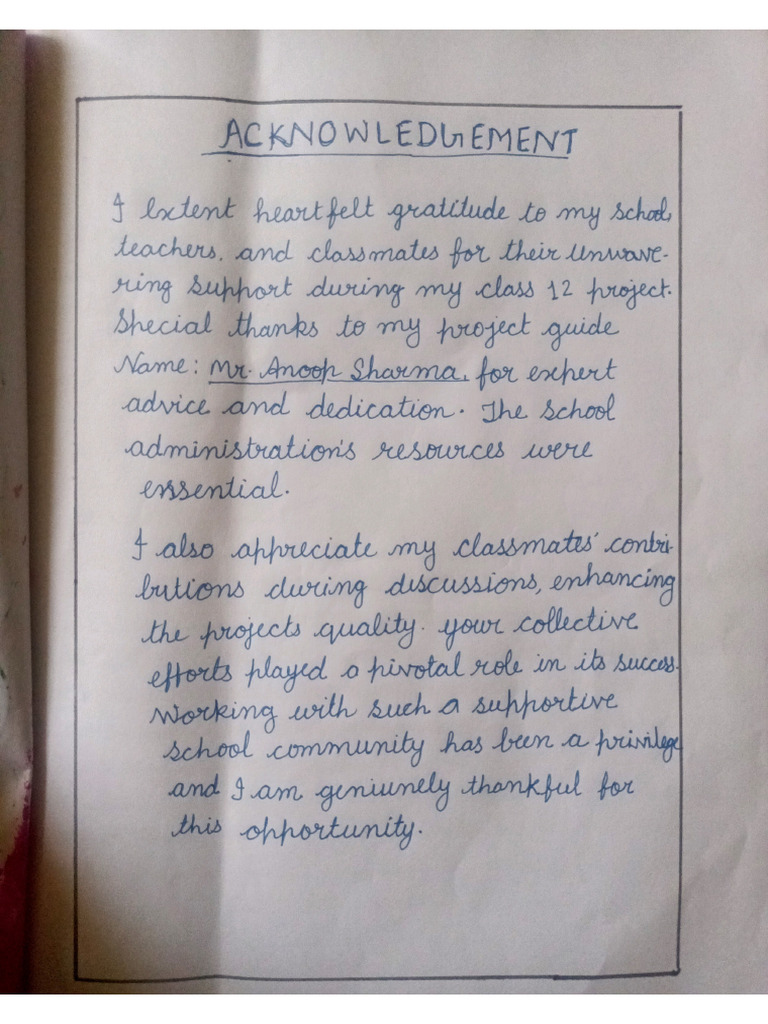 ACKNOWLEDGEMENT
I extent heartfelt gratitude to my school,
teachers, and classmates for their unwave-
ring support during my class 12 project.
Special thanks to my project guide
Name: Mr. Anoop Sharma, for expert
advice and dedication. The school
administration's resources were
essential.
I also appreciate my classmates' contri-
butions during discussions, enhancing
the projects quality. your collective
efforts played a pivotal role in its success.
Working with such a supportive
school community has been a privilege
and I am geniunely thankful for
this opportunity.